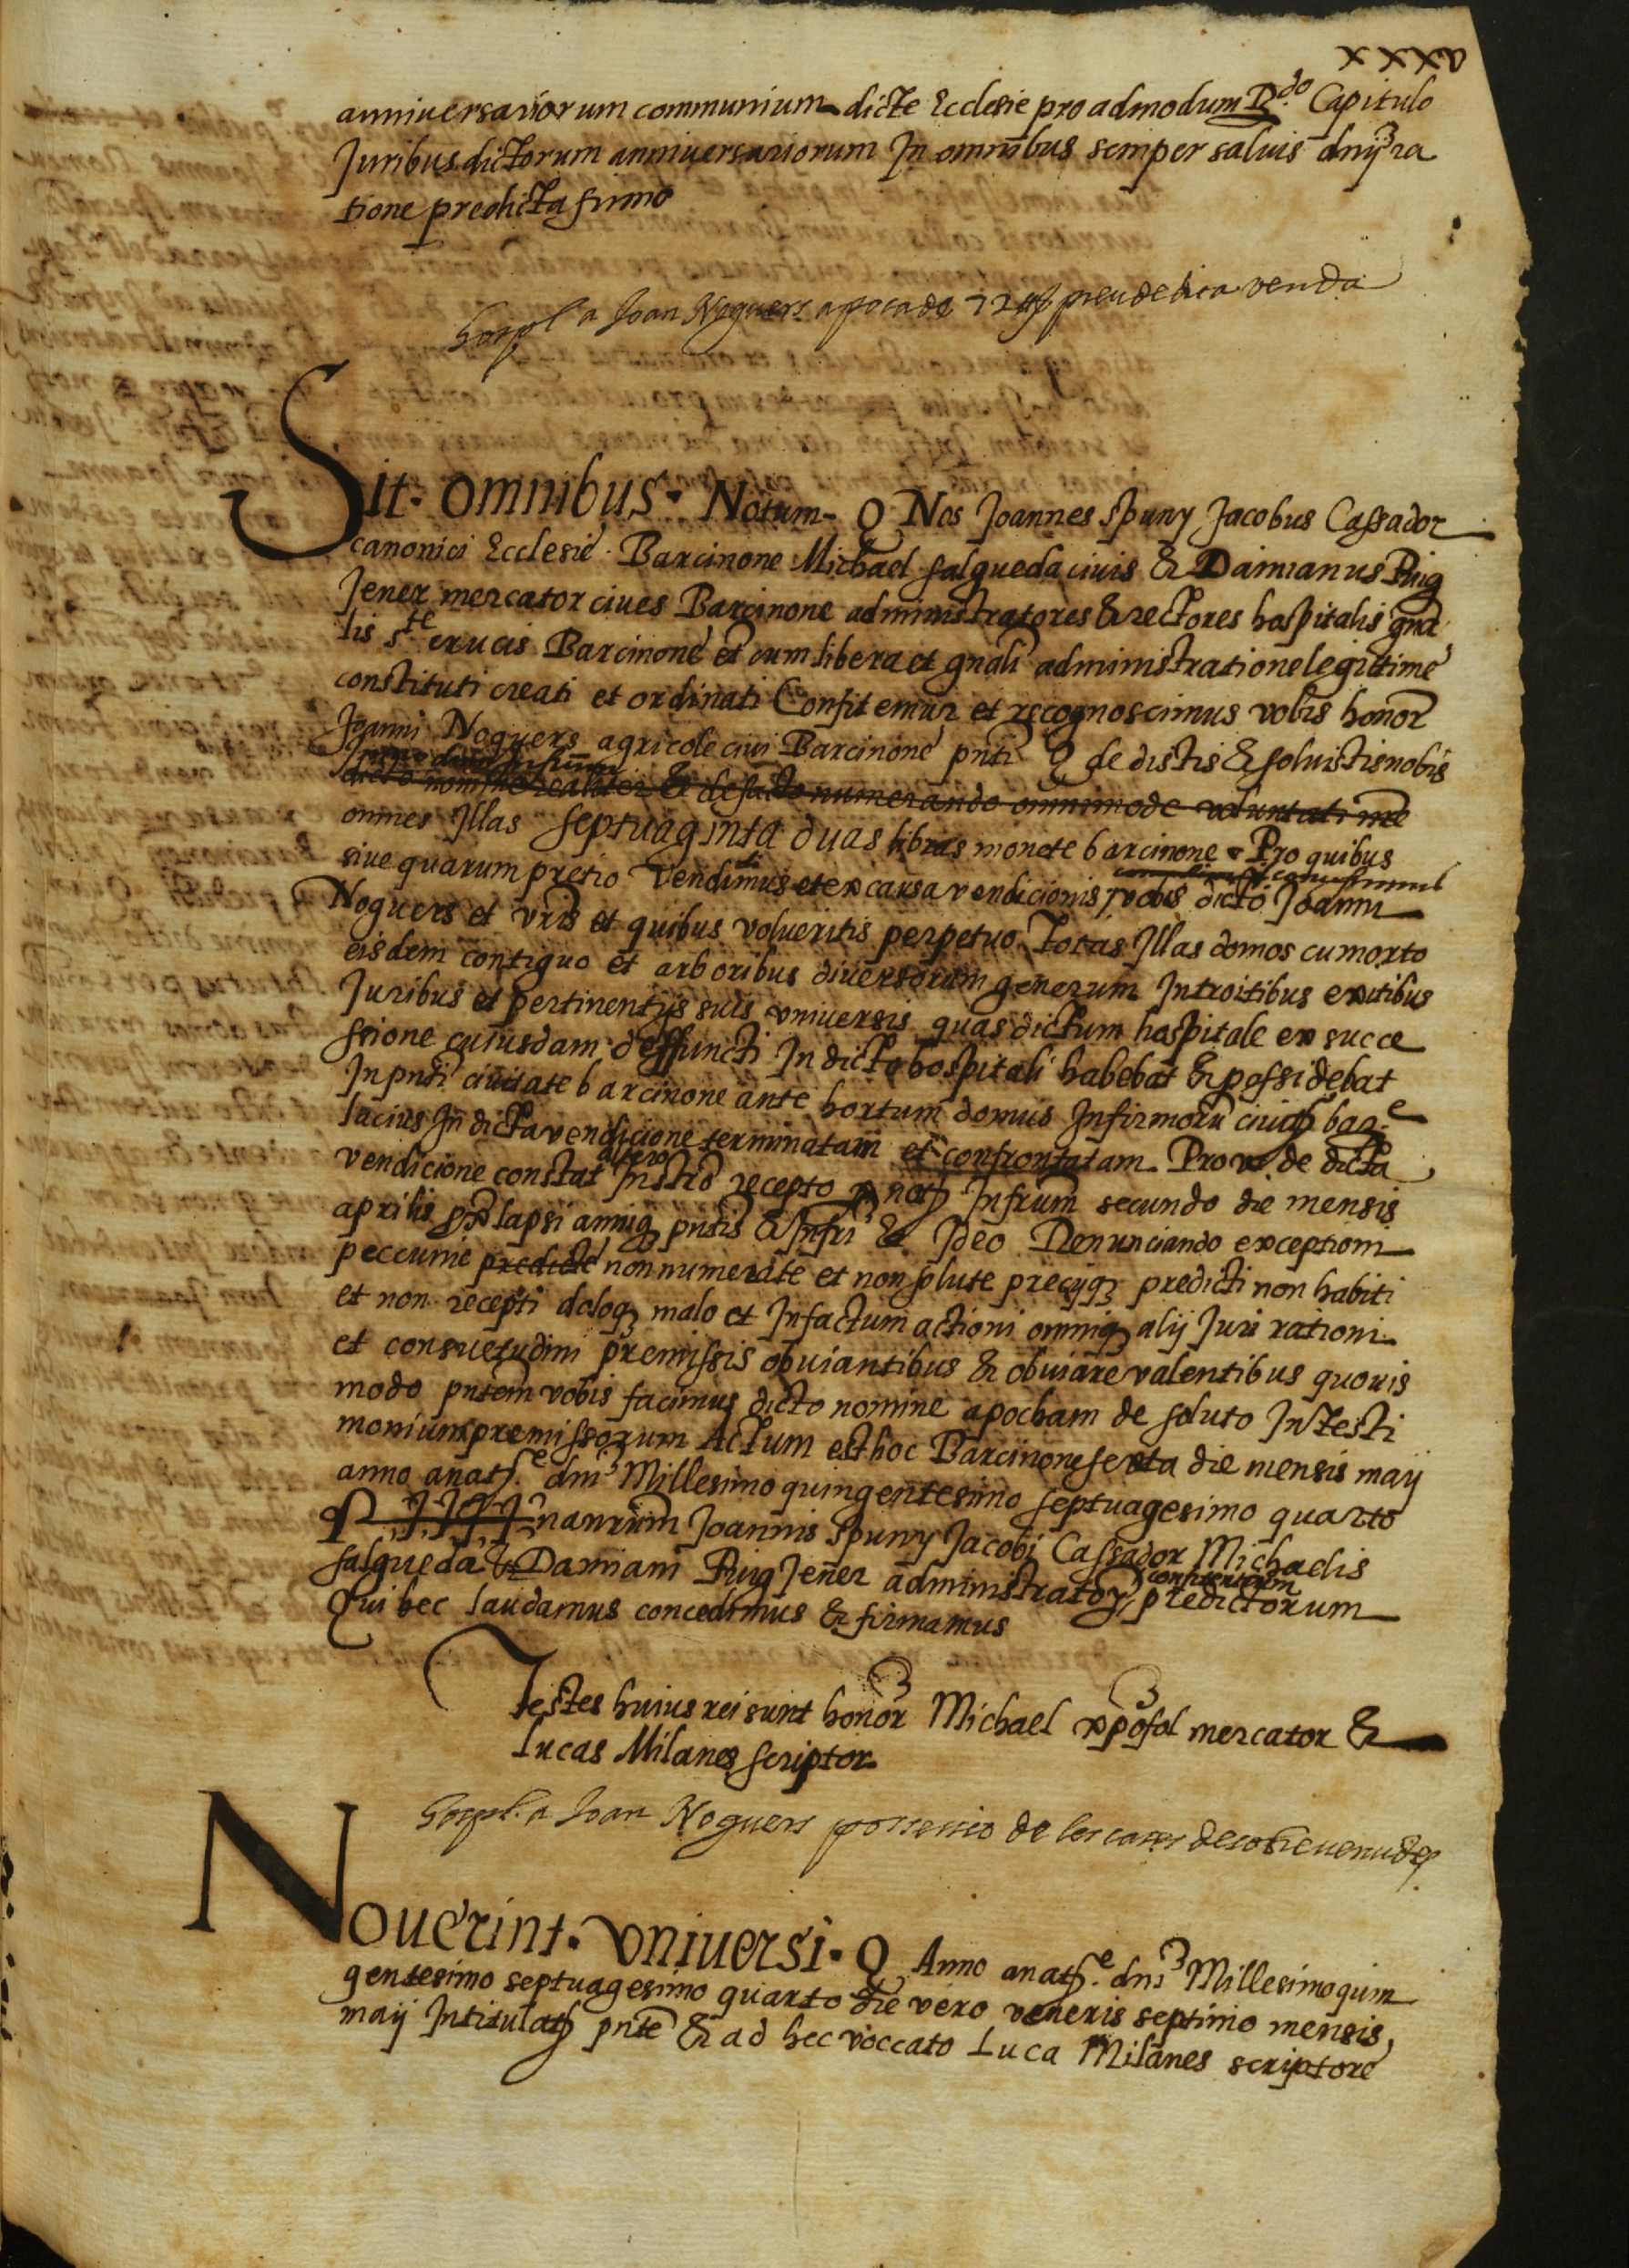 xxxv
anniversariorum communium dicte Ecclesie pro admodum Rdo. Capitulo
Juribus dictorum anniversariorum In omnibus semper salvis dnij ra
tione predicta firmo
hospl a Joan Noguers apoca de 72 preu de dita venda
Sit. omnibus. Notum - Q Nos Joannes Spuny Jacobus Cassador
canonici Ecclesie. Barcinone Michael salgueda civis & Damianus Puig
Jener mercator cives Barcinone administratores & rectores hospitalis gnra
lis ste crucis Barcinone et cum libera et gnali administratione legittime
constituti creati et ordinati Confitemur et recognoscimus vobis honor
Joanni Noguers agricole civi Barcinone pnti Q dedistis & solvistis nobis
dicto nomine realiter & de facto numerando omnimode voluntati nre
omnes Illas septuaginta duas libras monete barcinone. Pro quibus
sive quarum pretio vendimus et ex causa vendicionis vobis dicto Joanni
Noguers et vris et quibus volueritis perpetuo Totas Illas domos cum orto
eisdem contiguo et arboribus diversorum generum Introitibus exitibus
Juribus et pertinentijs suis universis quas dictum hospitale ex succe
ssione cuiusdam deffuncti In dicto hospitali habebat & possidebat
In pnti civitate barcinone ante hortum domus Infirmoru
lacius In dicta vendicione terminatam et confrontatam. Prout de dicta
vendicione constat Instro recepto Infrum secundo die mensis
aprilis lapsi anniq pntis & Infri & Ideo Renunciando exceptioni
peccunie predicte non numerate et non solute precijq predicti non habiti
et non recepti doloq malo et In factum actioni omniq alij Juri rationi
et consuetudini premissis obviantibus & obviare valentibus quovis
modo pntem vobis facimus dicto nomine apocham de soluto In testi
monium premissorum Actum est hoc Barcinone sexta die mensis maij
anno anate. dni Millesimo quingentesimo septuagesimo quarto
Joannis Spuny Jacobi Cassador Michaelis
salgueda & Damiani Puig Jener administrator predictorum
Qui hec laudamus concedimus & firmamus
Testes huius rei sunt honor Michael xpofol mercator &
Lucas Milanes scriptor.
hospl. a Joan Noguers possessio de les cases desobre venudes
Noverint. universi. Q Anno anate. dni Millesimo quin
gentesimo septuagesimo quarto die vero veneris septimo mensis
maij Intitulat pnte & ad hec voccato Luca Milanes scriptore